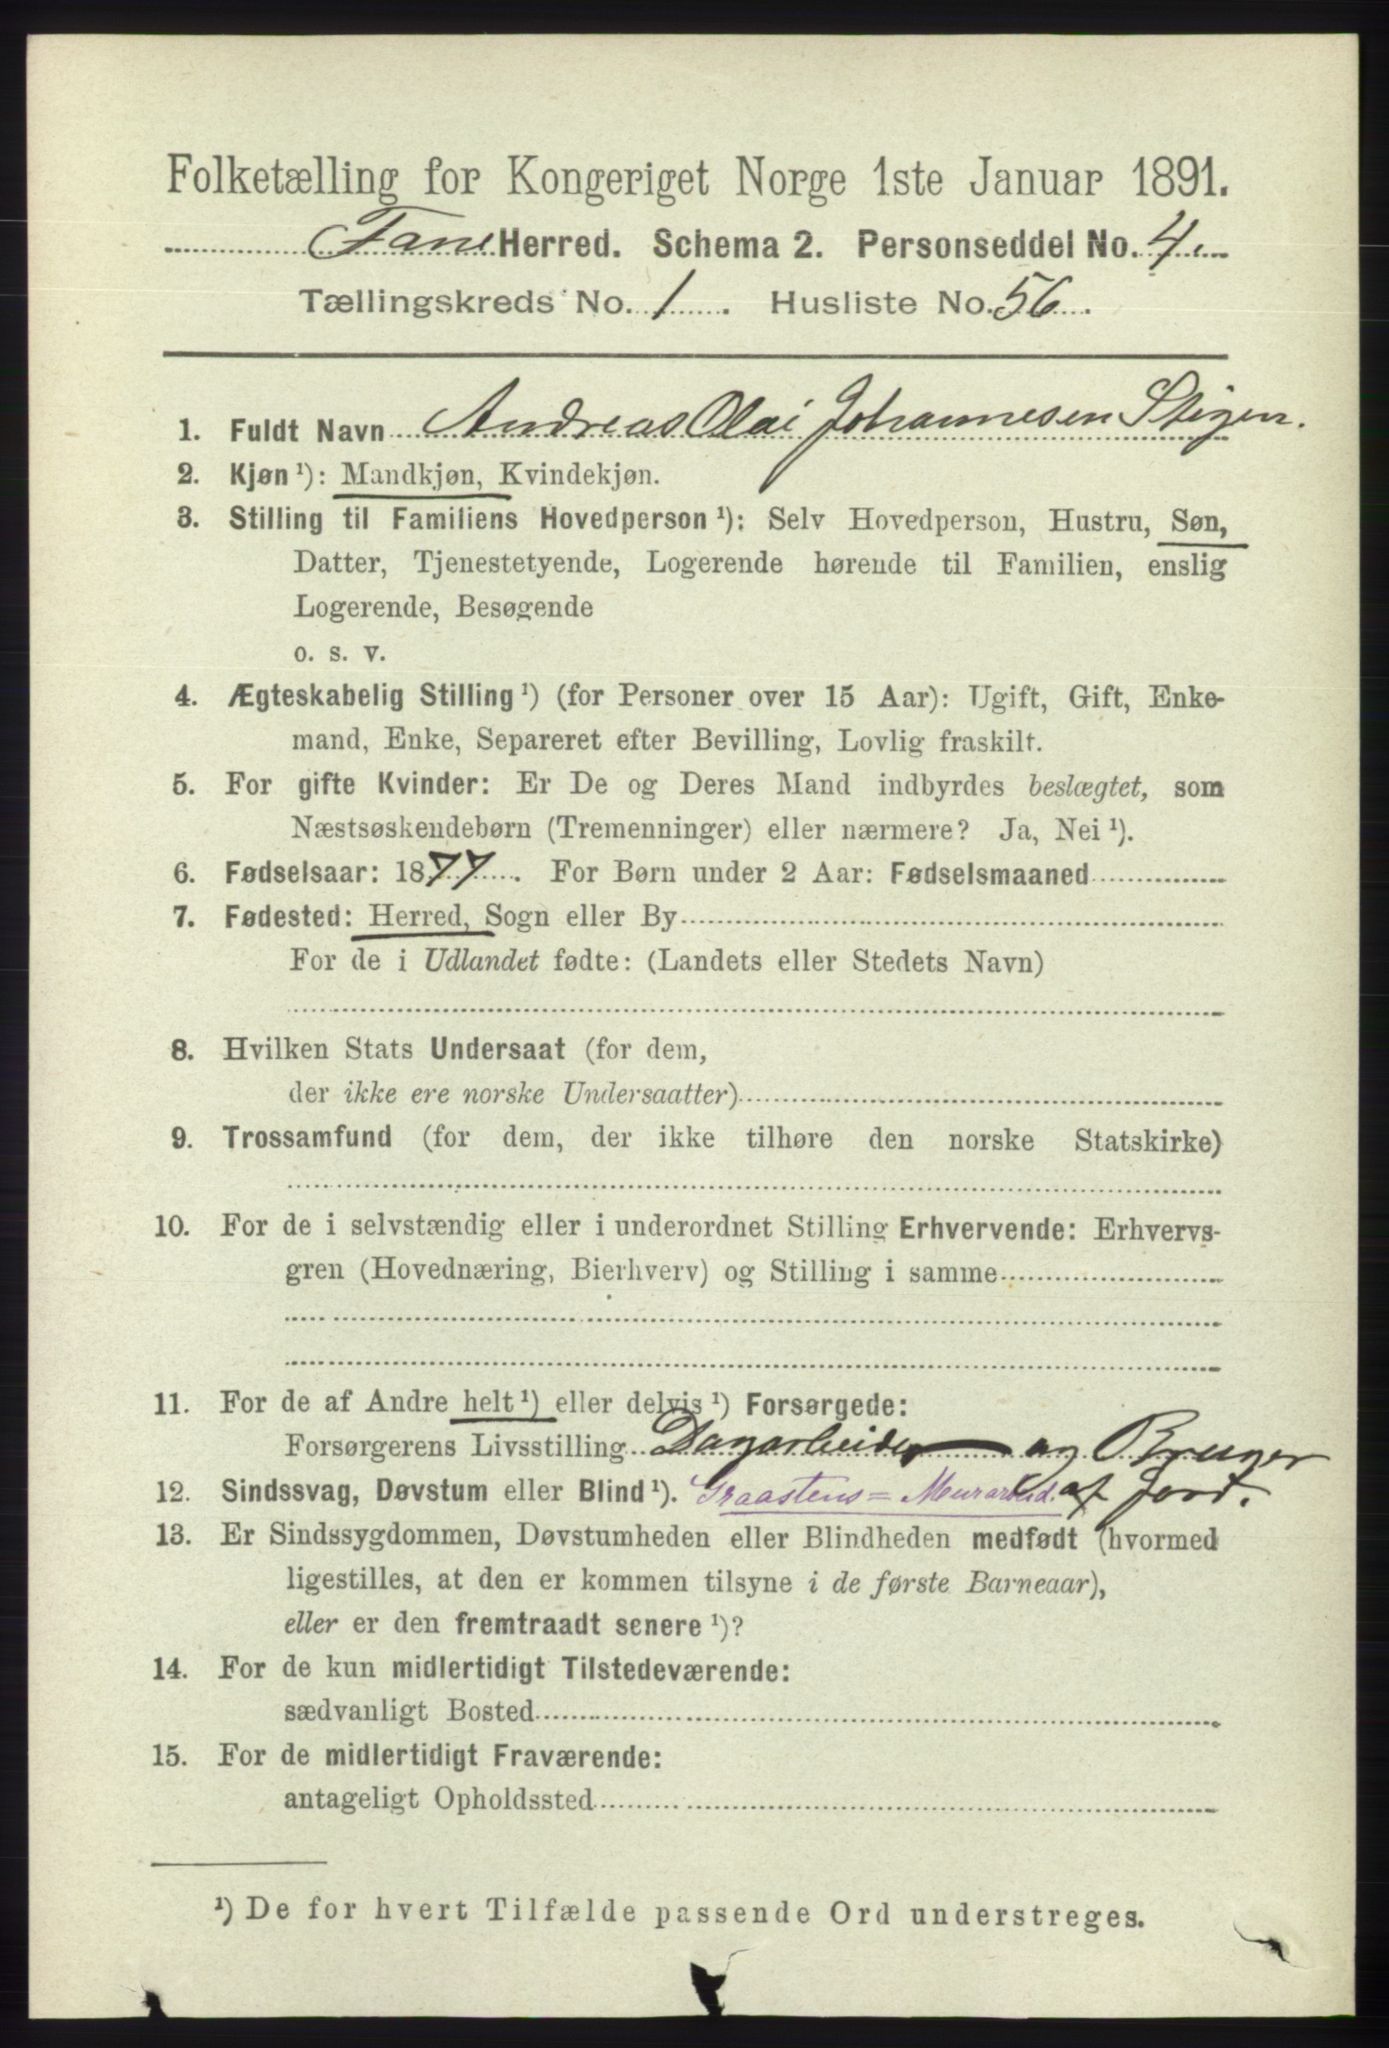 Folketælling for Kongeriget Norge 1ste Januar 1891.
Fane Herred. Schema 2. Personseddel No. 4.
Tællingskreds No. 1. Husliste No. 56.
1. Fuldt Navn Andreas Olai Johannesen Stigen.
2. Kjøn ¹): Mandkjøn, Kvindekjøn.
3. Stilling til Familiens Hovedperson ¹): Selv Hovedperson, Hustru, Søn,
Datter, Tjenestetyende, Logerende hørende til Familien, enslig
Logerende, Besøgende
o. s. v.
4. Ægteskabelig Stilling ¹) (for Personer over 15 Aar): Ugift, Gift, Enke-
mand, Enke, Separeret efter Bevilling, Lovlig fraskilt.
5. For gifte Kvinder: Er De og Deres Mand indbyrdes beslægtet, som
Næstsøskendebørn (Tremenninger) eller nærmere? Ja, Nei ¹).
6. Fødselsaar: 1877. For Børn under 2 Aar: Fødselsmaaned
7. Fødested: Herred, Sogn eller By
For de i Udlandet fødte: (Landets eller Stedets Navn)
8. Hvilken Stats Undersaat (for dem,
der ikke ere norske Undersaatter)
9. Trossamfund (for dem, der ikke tilhøre den norske Statskirke)
10. For de i selvstændig eller i underordnet Stilling Erhvervende: Erhvervs-
gren (Hovednæring, Bierhverv) og Stilling i samme
11. For de af Andre helt ¹) eller delvis ¹) Forsørgede:
Forsørgerens Livsstilling Dagarbeider og Bruger
12. Sindssvag, Døvstum eller Blind ¹). Graastens= Murarbeid. af Jord.
13. Er Sindssygdommen, Døvstumheden eller Blindheden medfødt (hvormed
ligestilles, at den er kommen tilsyne i de første Barneaar),
eller er den fremtraadt senere ¹)?
14. For de kun midlertidigt Tilstedeværende:
sædvanligt Bosted
15. For de midlertidigt Fraværende:
antageligt Opholdssted
¹) De for hvert Tilfælde passende Ord understreges.